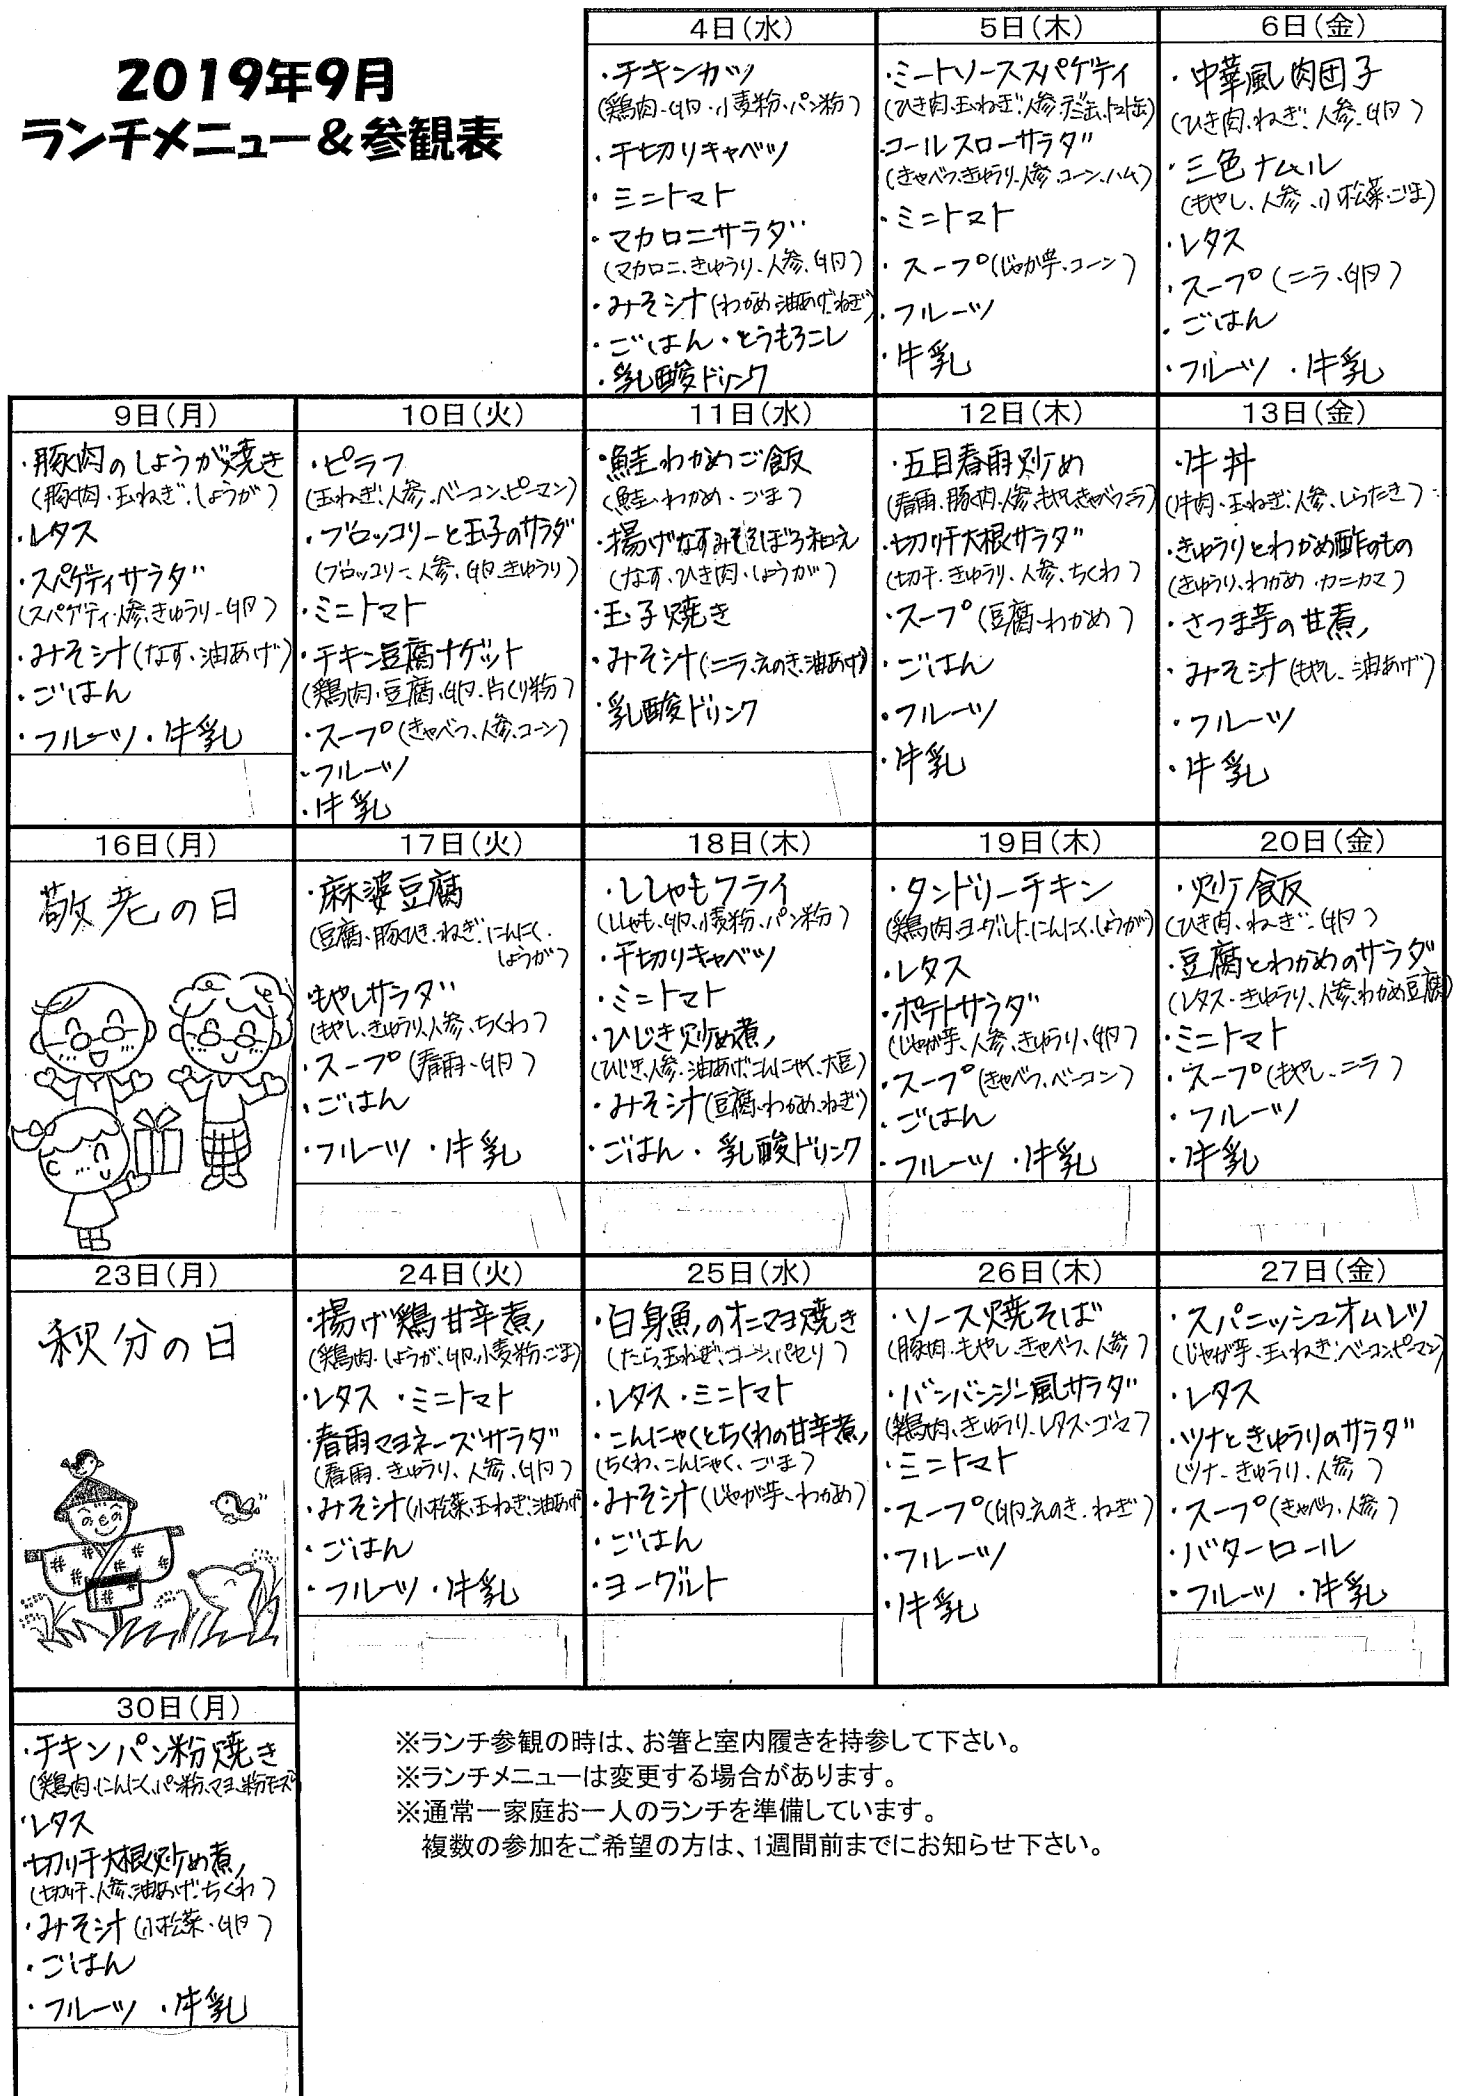 2019年9月
ランチメニュー&参観表
4日(水)
・チキンカツ
(鶏肉・卵・小麦粉・パン粉)
・千切りキャベツ
・ミニトマト
・マカロニサラダ
(マカロニ、きゅうり、人参、卵)
・みそ汁(わかめ、油あげ、ねぎ)
・ごはん・とうもろこし
・乳酸ドリンク
5日(木)
・ミートソーススパゲティ
(ひき肉、玉ねぎ、人参、デミ缶、トマト缶)
・コールスローサラダ
(きゃべつ、きゅうり、人参、コーン、ハム)
・ミニトマト
・スープ(じゃが芋、コーン)
・フルーツ
・牛乳
6日(金)
・中華風肉団子
(ひき肉、ねぎ、人参、卵)
・三色ナムル
(もやし、人参、小松菜、ごま)
・レタス
・スープ(ニラ・卵)
・ごはん
・フルーツ ・牛乳
9日(月)
・豚肉のしょうが焼き
(豚肉・玉ねぎ、しょうが)
・レタス
・スパゲティサラダ
(スパゲティ、人参、きゅうり、卵)
・みそ汁(なす、油あげ)
・ごはん
・フルーツ・牛乳
10日(火)
・ピラフ
(玉ねぎ、人参、ベーコン、ピーマン)
・ブロッコリーと玉子のサラダ
(ブロッコリー、人参、卵、きゅうり)
・ミニトマト
・チキン豆腐ナゲット
(鶏肉・豆腐、卵、片くり粉)
・スープ(きゃべつ、人参、コーン)
・フルーツ
・牛乳
11日(水)
・鮭わかめご飯
(鮭、わかめ、ごま)
・揚げなすみそそぼろ和え
(なす、ひき肉、しょうが)
・玉子焼き
・みそ汁(ニラ、えのき、油あげ)
・乳酸ドリンク
12日(木)
・五目春雨炒め
(春雨、豚肉、人参、もやし、きゃべつ、ニラ)
・切り干大根サラダ
(切干、きゅうり、人参、ちくわ)
・スープ(豆腐、わかめ)
・ごはん
・フルーツ
・牛乳
13日(金)
・牛丼
(牛肉、玉ねぎ、人参、しらたき)
・きゅうりとわかめ酢のもの
(きゅうり、わかめ、カニカマ)
・さつま芋の甘煮
・みそ汁(もやし、油あげ)
・フルーツ
・牛乳
16日(月)
敬老の日
17日(火)
・麻婆豆腐
(豆腐、豚ひき、ねぎ、にんにく、
しょうが)
・もやしサラダ
(もやし、きゅうり、人参、ちくわ)
・スープ(春雨・卵)
・ごはん
・フルーツ ・牛乳
18日(木)
・ししゃもフライ
(ししゃも、卵、小麦粉、パン粉)
・千切りキャベツ
・ミニトマト
・ひじき炒め煮
(ひじき、人参、油あげ、こんにゃく、大豆)
・みそ汁(豆腐、わかめ、ねぎ)
・ごはん・乳酸ドリンク
19日(木)
・タンドリーチキン
(鶏肉、ヨーグルト、にんにく、しょうが)
・レタス
・ポテトサラダ
(じゃが芋、人参、きゅうり、卵)
・スープ(きゃべつ、ベーコン)
・ごはん
・フルーツ ・牛乳
20日(金)
・炒飯
(ひき肉、ねぎ、卵)
・豆腐とわかめのサラダ
(レタス・きゅうり、人参、わかめ、豆腐)
・ミニトマト
・スープ(もやし、ニラ)
・フルーツ
・牛乳
23日(月)
秋分の日
24日(火)
・揚げ鶏甘辛煮
(鶏肉、しょうが、卵、小麦粉、ごま)
・レタス ・ミニトマト
・春雨マヨネーズサラダ
(春雨、きゅうり、人参、卵)
・みそ汁(小松菜、玉ねぎ、油あげ)
・ごはん
・フルーツ ・牛乳
25日(水)
・白身魚のオニマヨ焼き
(たら、玉ねぎ、コーン、パセリ)
・レタス・ミニトマト
・こんにゃくとちくわの甘辛煮
(ちくわ、こんにゃく、ごま)
・みそ汁(じゃが芋、わかめ)
・ごはん
・ヨーグルト
26日(木)
・ソース焼そば
(豚肉・もやし、きゃべつ、人参)
・バンバンジー風サラダ
(鶏肉、きゅうり、レタス・ゴマ)
・ミニトマト
・スープ(卵、えのき、ねぎ)
・フルーツ
・牛乳
27日(金)
・スパニッシュオムレツ
(じゃが芋、玉ねぎ、ベーコン、ピーマン)
・レタス
・ツナときゅうりのサラダ
(ツナ、きゅうり、人参)
・スープ(きゃべつ、人参)
・バターロール
・フルーツ ・牛乳
30日(月)
・チキンパン粉焼き
(鶏肉、にんにく、パン粉、マヨ、粉チーズ)
・レタス
・切り干大根炒め煮
(切り干、人参、油あげ、ちくわ)
・みそ汁(小松菜・卵)
・ごはん
・フルーツ ・牛乳
※ランチ参観の時は、お箸と室内履きを持参して下さい。
※ランチメニューは変更する場合があります。
※通常一家庭お一人のランチを準備しています。
複数の参加をご希望の方は、1週間前までにお知らせ下さい。